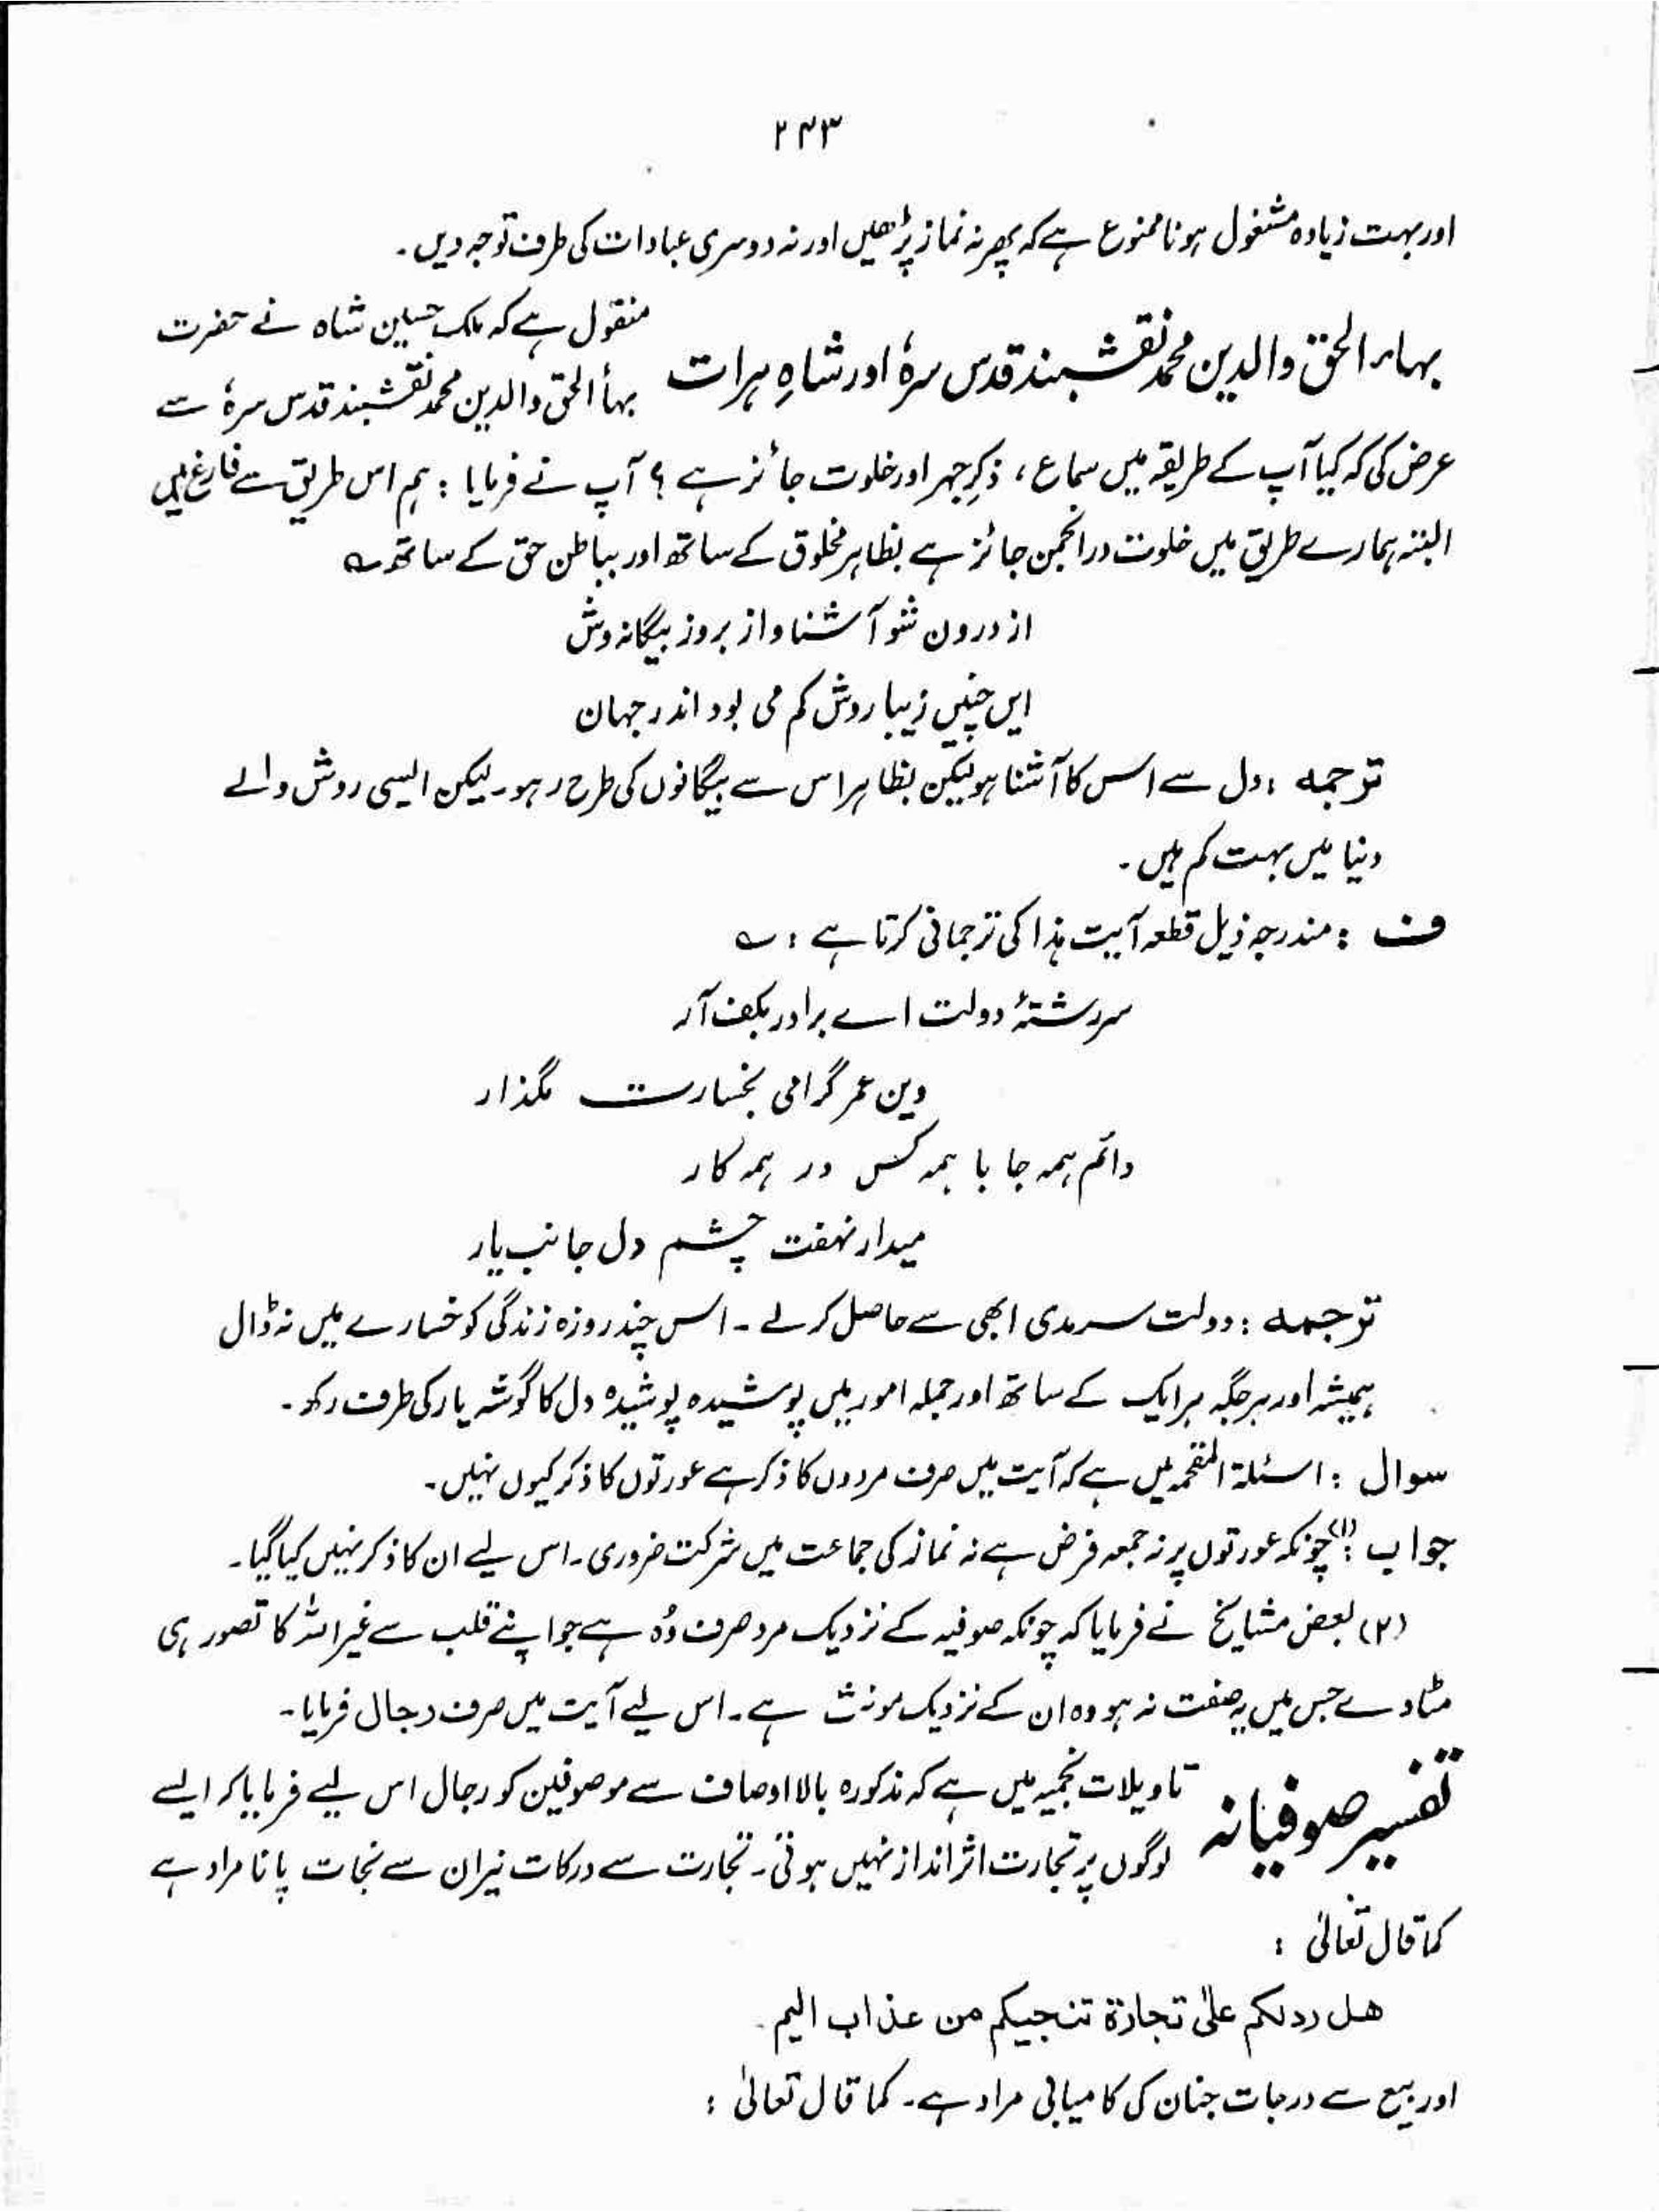 ۲۴۳
اور بہت زیادہ مشغول ہونا ممنوع ہے کہ پھر نہ نماز پڑھیں اور نہ دوسری عبادات کی طرف توجہ دیں۔
بہاء الحق والدین محمد نقشبند قدس سرہٗ اور شاہِ ہرات
منقول ہے کہ ملک حسین شاہ نے حضرت
بہأ الحق والدین محمد نقشبند قدس سرہٗ سے
عرض کی کہ کیا آپ کے طریقہ میں سماع، ذکرِ جہر اور خلوت جائز ہے؟ آپ نے فرمایا: ہم اس طریق سے فارغ ہیں
البتہ ہمارے طریق میں خلوت در انجمن جائز ہے بظاہر مخلوق کے ساتھ اور بباطن حق کے ساتھ ؎
از درون شو آشنا و از بروز بیگانہ وش
ایں چنیں زیبا روش کم می بود اندر جہان
ترجمہ: دل سے اس کا آشنا ہو لیکن بظاہر اس سے بیگانوں کی طرح رہو۔ لیکن ایسی روش والے
دنیا میں بہت کم ہیں۔
ف: مندرجہ ذیل قطعہ آیت ہذا کی ترجمانی کرتا ہے: ؎
سررشتۂ دولت اے برادر بکف آر
وین عمر گرامی بخسارت مگذار
دائم ہمہ جا با ہمہ کس در ہمہ کار
میدار نہفت چشم دل جانب یار
ترجمہ: دولت سرمدی ابھی سے حاصل کر لے۔ اس چند روزہ زندگی کو خسارے میں نہ ڈال
ہمیشہ اور ہر جگہ ہر ایک کے ساتھ اور جملہ امور میں پوشیدہ پوشیدہ دل کا گوشہ یار کی طرف رکھ۔
سوال: اسئلۃ المقحمہ میں ہے کہ آیت میں صرف مردوں کا ذکر ہے عورتوں کا ذکر کیوں نہیں۔
جواب: (۱) چونکہ عورتوں پر نہ جمعہ فرض ہے نہ نماز کی جماعت میں شرکت ضروری۔ اس لیے ان کا ذکر نہیں کیا گیا۔
(۲) بعض مشایخ نے فرمایا کہ چونکہ صوفیہ کے نزدیک مرد صرف وُہ ہے جو اپنے قلب سے غیر اللہ کا تصور ہی
مٹا دے جس میں یہ صفت نہ ہو وہ ان کے نزدیک مونث ہے۔ اس لیے آیت میں صرف رجال فرمایا۔
تفسیر صوفیانہ
تاویلات نجمیہ میں ہے کہ مذکورہ بالا اوصاف سے موصوفین کو رجال اس لیے فرمایا کہ ایسے
لوگوں پر تجارت اثر انداز نہیں ہوتی۔ تجارت سے درکات نیران سے نجات پانا مراد ہے
کما قال تعالیٰ:
ھل ردلکم علیٰ تجارة تنجیکم من عذاب الیم۔
اور بیع سے درجات جنان کی کامیابی مراد ہے۔ کما قال تعالیٰ: